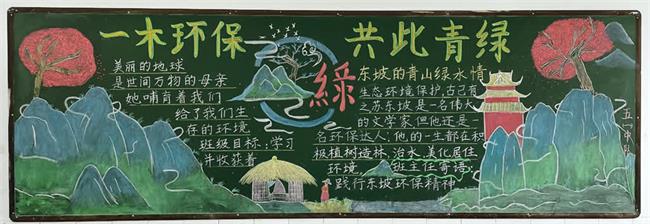 一木环保 共此青绿
美丽的地球
是世间万物的母亲
她哺育着我们
给了我们生
存的环境
班级目标:学习
并收获着
綠
东坡的青山绿水情
生态环境保护,古己有
之苏东坡是一名伟大
的文学家,但他还是一
名环保达人,他的一生都在积
极植树造林、治水、美化居住
环境
班主任寄语:
践行东坡环保精神
五一中队